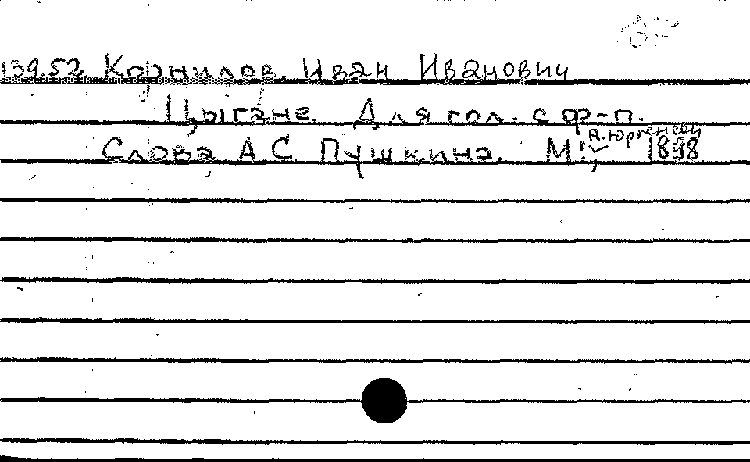 13952 Корнилов Иван Иванович
Цыгане. Для гол. с ф-п.
Слова А С Пушкина. М.; П. Юргенсон 1898